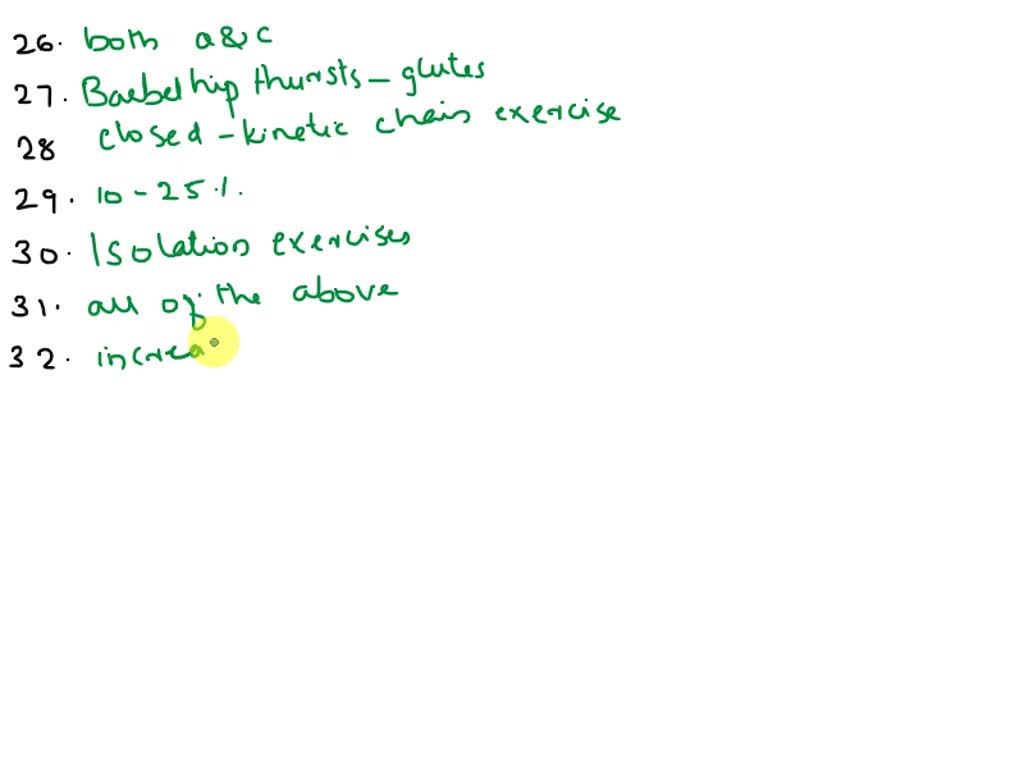 26. both a&c
27. Baebel hip thursts - glutes
28 closed - kinetic chain exercise
29. 10 - 25%.
30. Isolation exercises
31. all of the above
32. increa